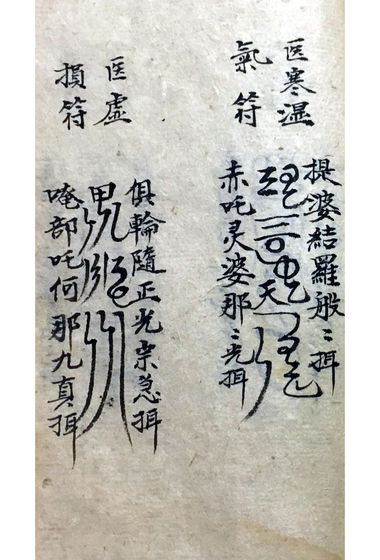 医寒湿
氣符
提婆結羅般〻弭
赤吒灵婆那〻光弭
医虚
損符
俱輪隨正光宗急弭
唵部吒何那九真弭